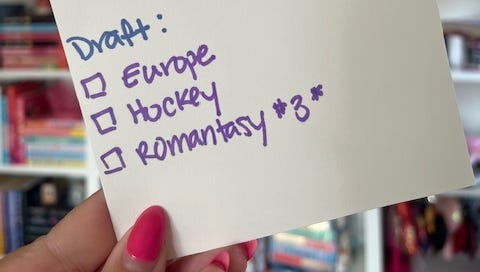 Draft:
Europe
Hockey
Romantasy *3*